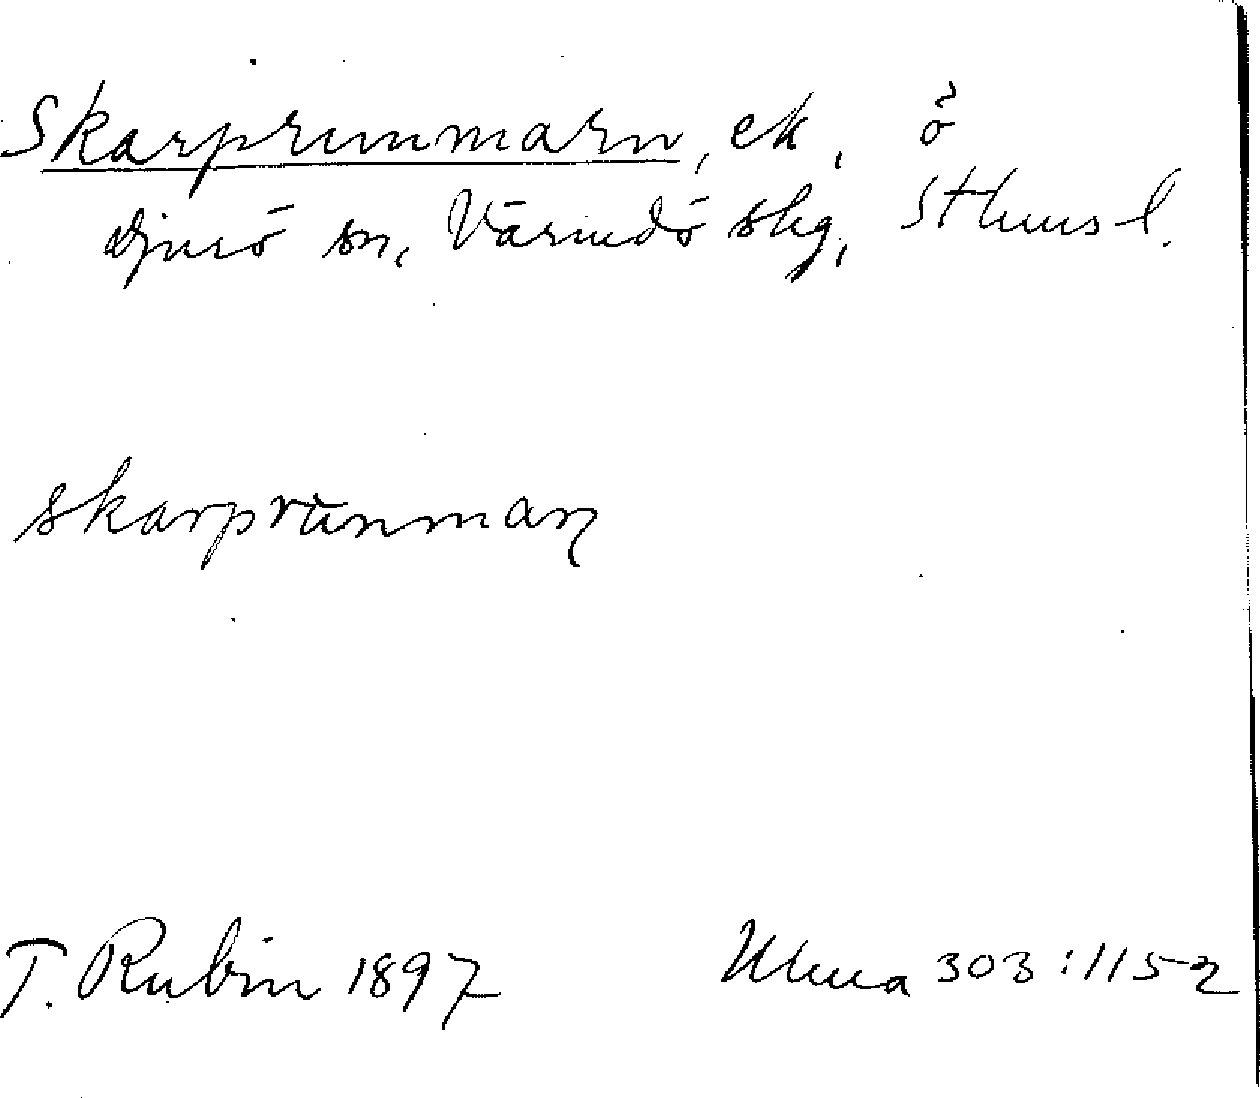 Skarprunmarn, ek, ö
Djurö sn, Värmdö skg, Sthms l.
skarprunmaꞃ
T. Rubin 1897 Ulma 303:1152